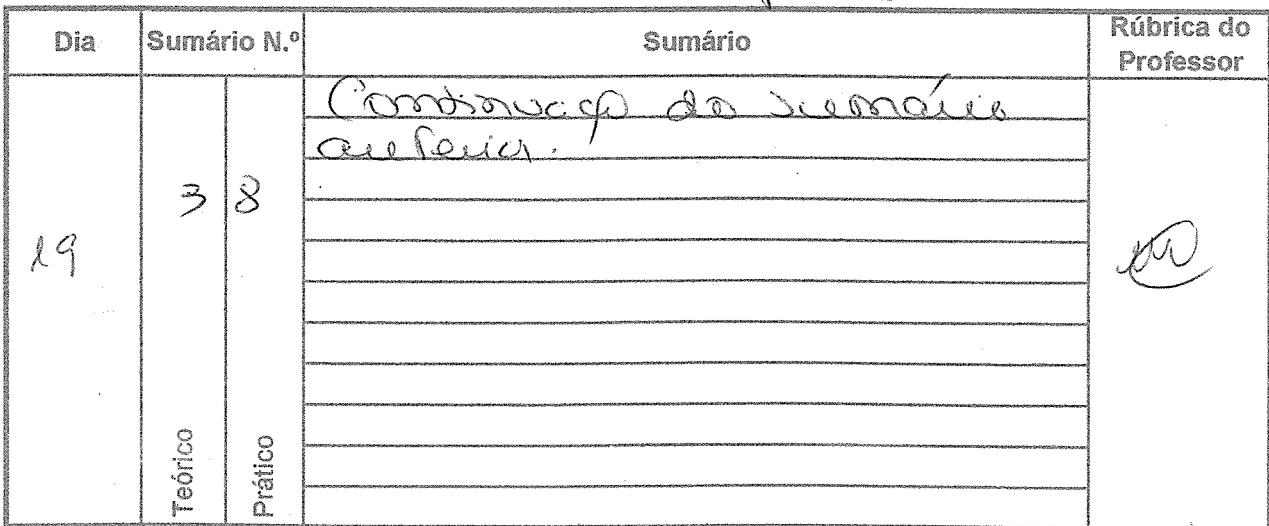 Dia Sumário N.º Sumário Rúbrica do
Professor
Continuação do sumário
anterior.
3 8
19
Teórico Prático